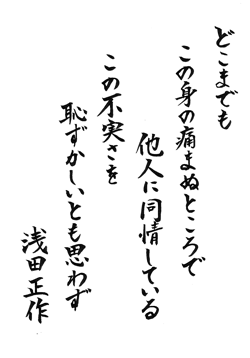 どこまでも
この身の痛まぬところで
他人に同情している
この不実さを
恥ずかしいとも思わず
浅田正作